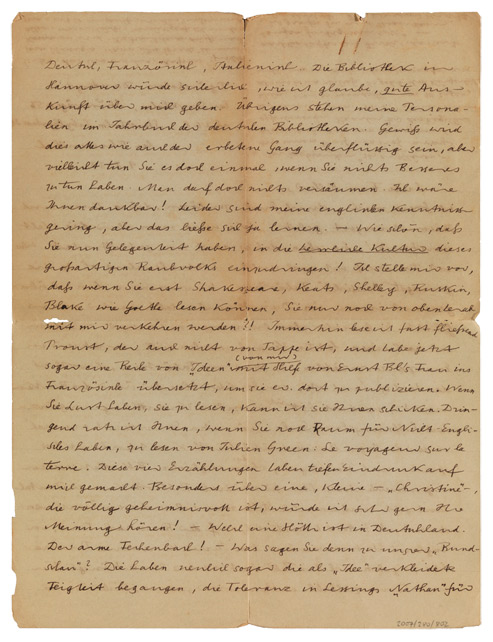 Deutsch, Französisch, Italienisch. Die Bibliothek in
Hannover würde sicherlich, wie ich glaube, gute Aus-
kunft über mich geben. Übrigens stehen meine Persona-
lien im Jahrbuch der deutschen Bibliotheken. Gewiß wird
dies alles wie auch der erbetene Gang überflüssig sein, aber
vielleicht tun Sie es doch einmal, wenn Sie nichts Besseres
zu tun haben. Man darf doch nichts versäumen. Ich wäre
Ihnen dankbar! Leider sind meine englischen Kenntnisse
gering, aber das ließe sich ja lernen. – Wie schön, daß
Sie nun Gelegenheit haben, in die Kultur dieses
großartigen Raubvolks einzudringen! Ich stelle mir vor,
daß wenn Sie erst Shakespeare, Keats, Shelley, Ruskin,
Blake wie Goethe lesen können, Sie nur noch von oben herab
mit mir verkehren werden?! Immerhin lese ich fast fließend
Proust, der auch nicht von Pappe ist, und habe jetzt
sogar eine Reihe von "Ideen" (von mir) mit Hilfe von Ernst Bl's Frau ins
Französische übersetzt, um sie ev. dort zu publizieren. Wenn
Sie Lust haben, sie zu lesen, kann ich sie Ihnen schicken. Drin-
gend rate ich Ihnen, wenn Sie noch Raum für Nicht-Engli-
sches haben, zu lesen von Julien Green: Le voyageur sur la
terre. Diese vier Erzählungen haben tiefen Eindruck auf
mich gemacht. Besonders über eine, kleine – "Christine" –,
die völlig geheimnisvoll ist, würde ich sehr gern Ihre
Meinung hören! – Welch eine Hölle ist in Deutschland.
Der arme Fechenbach! – Was sagen Sie denn zu unsrer "Rund-
schau"? Die haben neulich sogar die als "Idee" verkleidete
Feigheit begangen, die Toleranz in Lessings "Nathan" für
2007/240/802